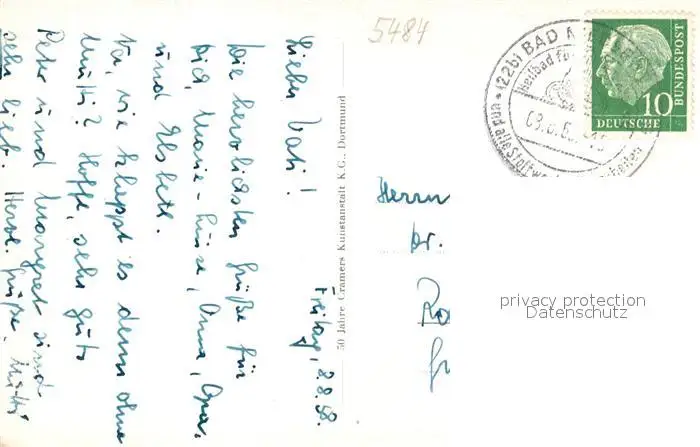 5484
(22b) BAD
Heilbad für
und alle Stoffwe
DEUTSCHE
BUNDESPOST
10
50 Jahre Cramers Kunstanstalt K.G., Dortmund
Freitag, 8.8.58.
Lieber Vati!
Die herzlichsten Grüße für
Dich, Marie-Luise, Oma, Opa,
und Elsbeth.
Na, wie klappt es denn ohne
Mutti? Hoffe, sehr gut.
Peter und Margret sind
sehr lieb. Herzl. Grüße, Mutti
Herrn
Dr.
Ro
privacy protection
Datenschutz